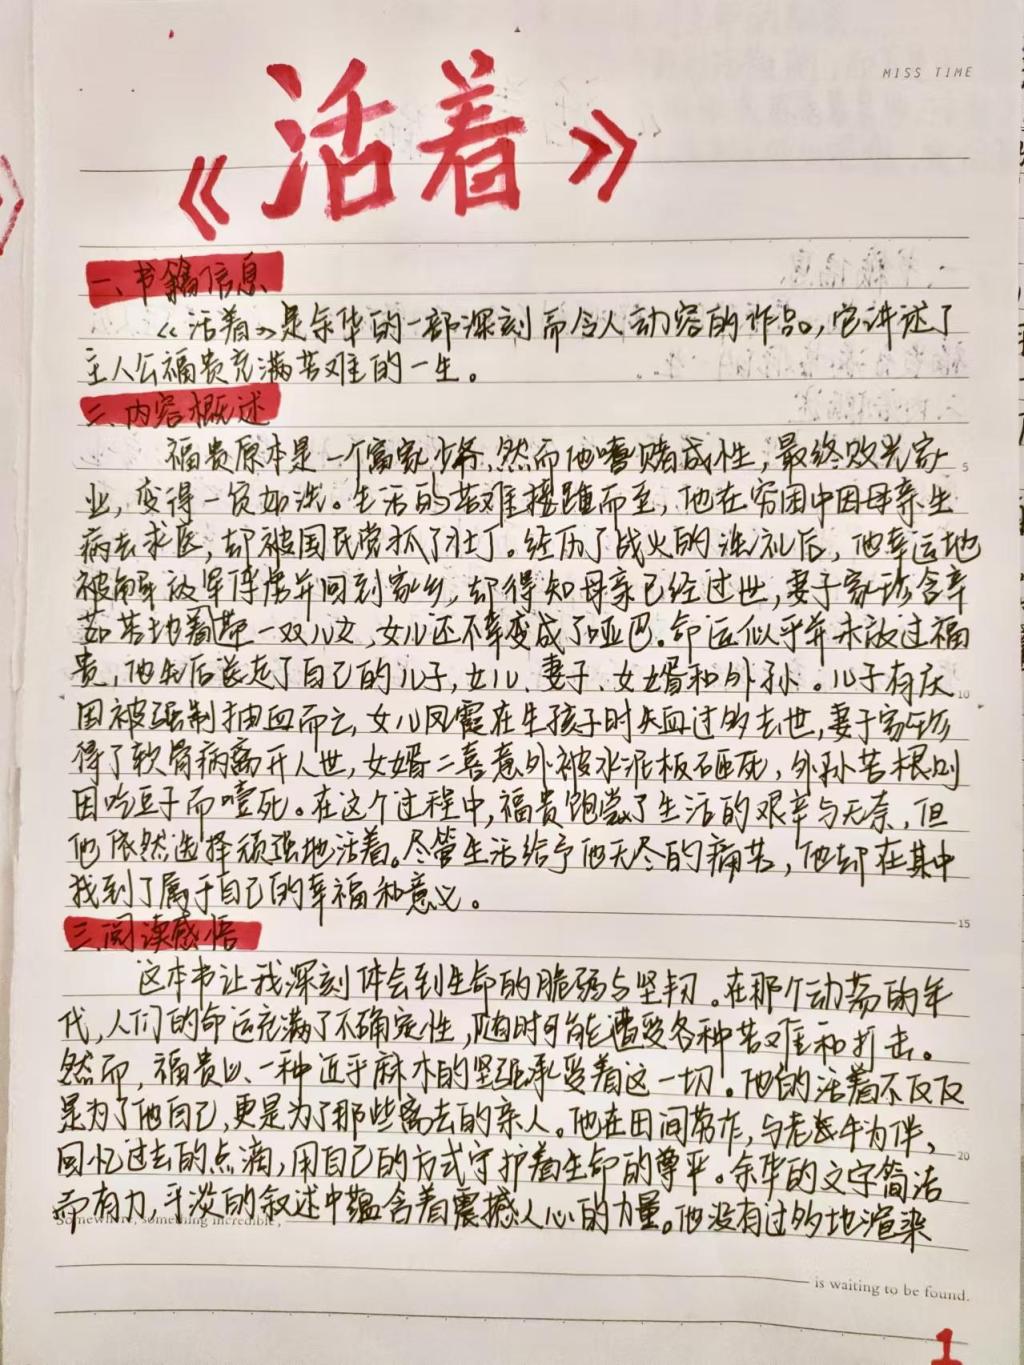 MISS TIME
《活着》
一、书籍信息
《活着》是余华的一部深刻而令人动容的作品，它讲述了
主人公福贵充满苦难的一生。
二、内容概述
福贵原本是一个富家少爷，然而他嗜赌成性，最终败光家
业，变得一贫如洗。生活的苦难接踵而至，他在穷困中因母亲生
病去求医，却被国民党抓了壮丁。经历了战火的洗礼后，他幸运地
被解放军俘虏并回到家乡，却得知母亲已经过世，妻子家珍含辛
茹苦地带着一双儿女，女儿还不幸变成了哑巴。命运似乎并未放过福
贵，他先后送走了自己的儿子，女儿、妻子、女婿和外孙。儿子有庆
因被强制抽血而亡，女儿凤霞在生孩子时失血过多去世，妻子家珍
得了软骨病离开人世，女婿二喜意外被水泥板砸死，外孙苦根则
因吃豆子而噎死。在这个过程中，福贵饱尝了生活的艰辛与无奈，但
他依然选择顽强地活着。尽管生活给予他无尽的痛苦，他却在其中
找到了属于自己的幸福和意义。
三、阅读感悟
这本书让我深刻体会到生命的脆弱与坚韧。在那个动荡的年
代，人们的命运充满了不确定性，随时可能遭受各种苦难和打击。
然而，福贵以一种近乎麻木的坚强承受着这一切。他的活着不仅仅
是为了他自己，更是为了那些离去的亲人。他在田间劳作，与老黄牛为伴，
回忆过去的点滴，用自己的方式守护着生命的尊严。余华的文字简洁
而有力，平淡的叙述中蕴含着震撼人心的力量。他没有过多地渲染
Somewhere, something incredible,
is waiting to be found.
5
10
15
20
1